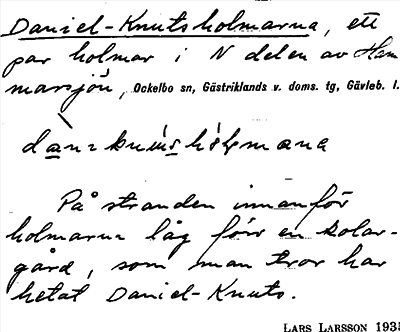 Daniel-Knutsholmarna, ett
par holmar i N delen av Ham
marsjön, Ockelbo sn, Gästriklands v. doms. tg, Gävleb. l.
På stranden innanför
holmarna låg förr en kolar-
gård, som man tror har
hetat Daniel-Knuts.
LARS LARSSON 193